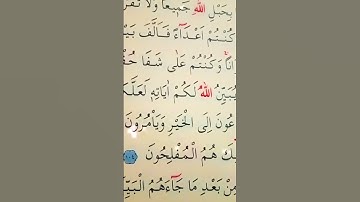 بِحَبْلِ اللّٰهِ جَم۪يعًا وَلَا تَفَرَّ
كُنْتُمْ اَعْدَٓاءً فَاَلَّفَ بَيْ
انًاۚ وَكُنْتُمْ عَلٰى شَفَا حُفْ
يُبَيِّنُ اللّٰهُ لَكُمْ اٰيَاتِه۪ لَعَلَّكُ
عُونَ اِلَى الْخَيْرِ وَيَأْمُرُونَ
ئِكَ هُمُ الْمُفْلِحُونَ ١٠٤
مِنْ بَعْدِ مَا جَٓاءَهُمُ الْبَيِّ